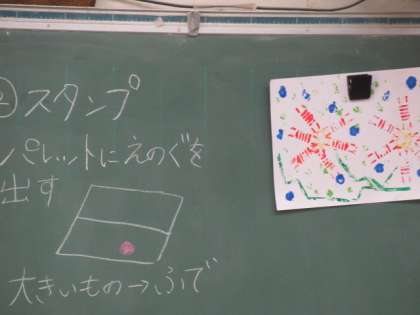 ②スタンプ
パレットにえのぐを
出す
大きいもの→ふで